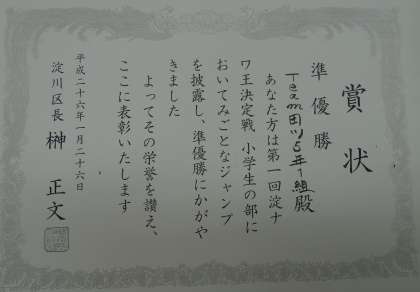 賞状
準優勝
Team田ツ5年1組殿
あなた方は第一回淀ナ
ワ王決定戦 小学生の部に
おいてみごとなジャンプ
を披露し、準優勝にかがや
きました
よってその栄誉を讃え、
ここに表彰いたします
平成二十六年一月二十六日
淀川区長 榊 正文